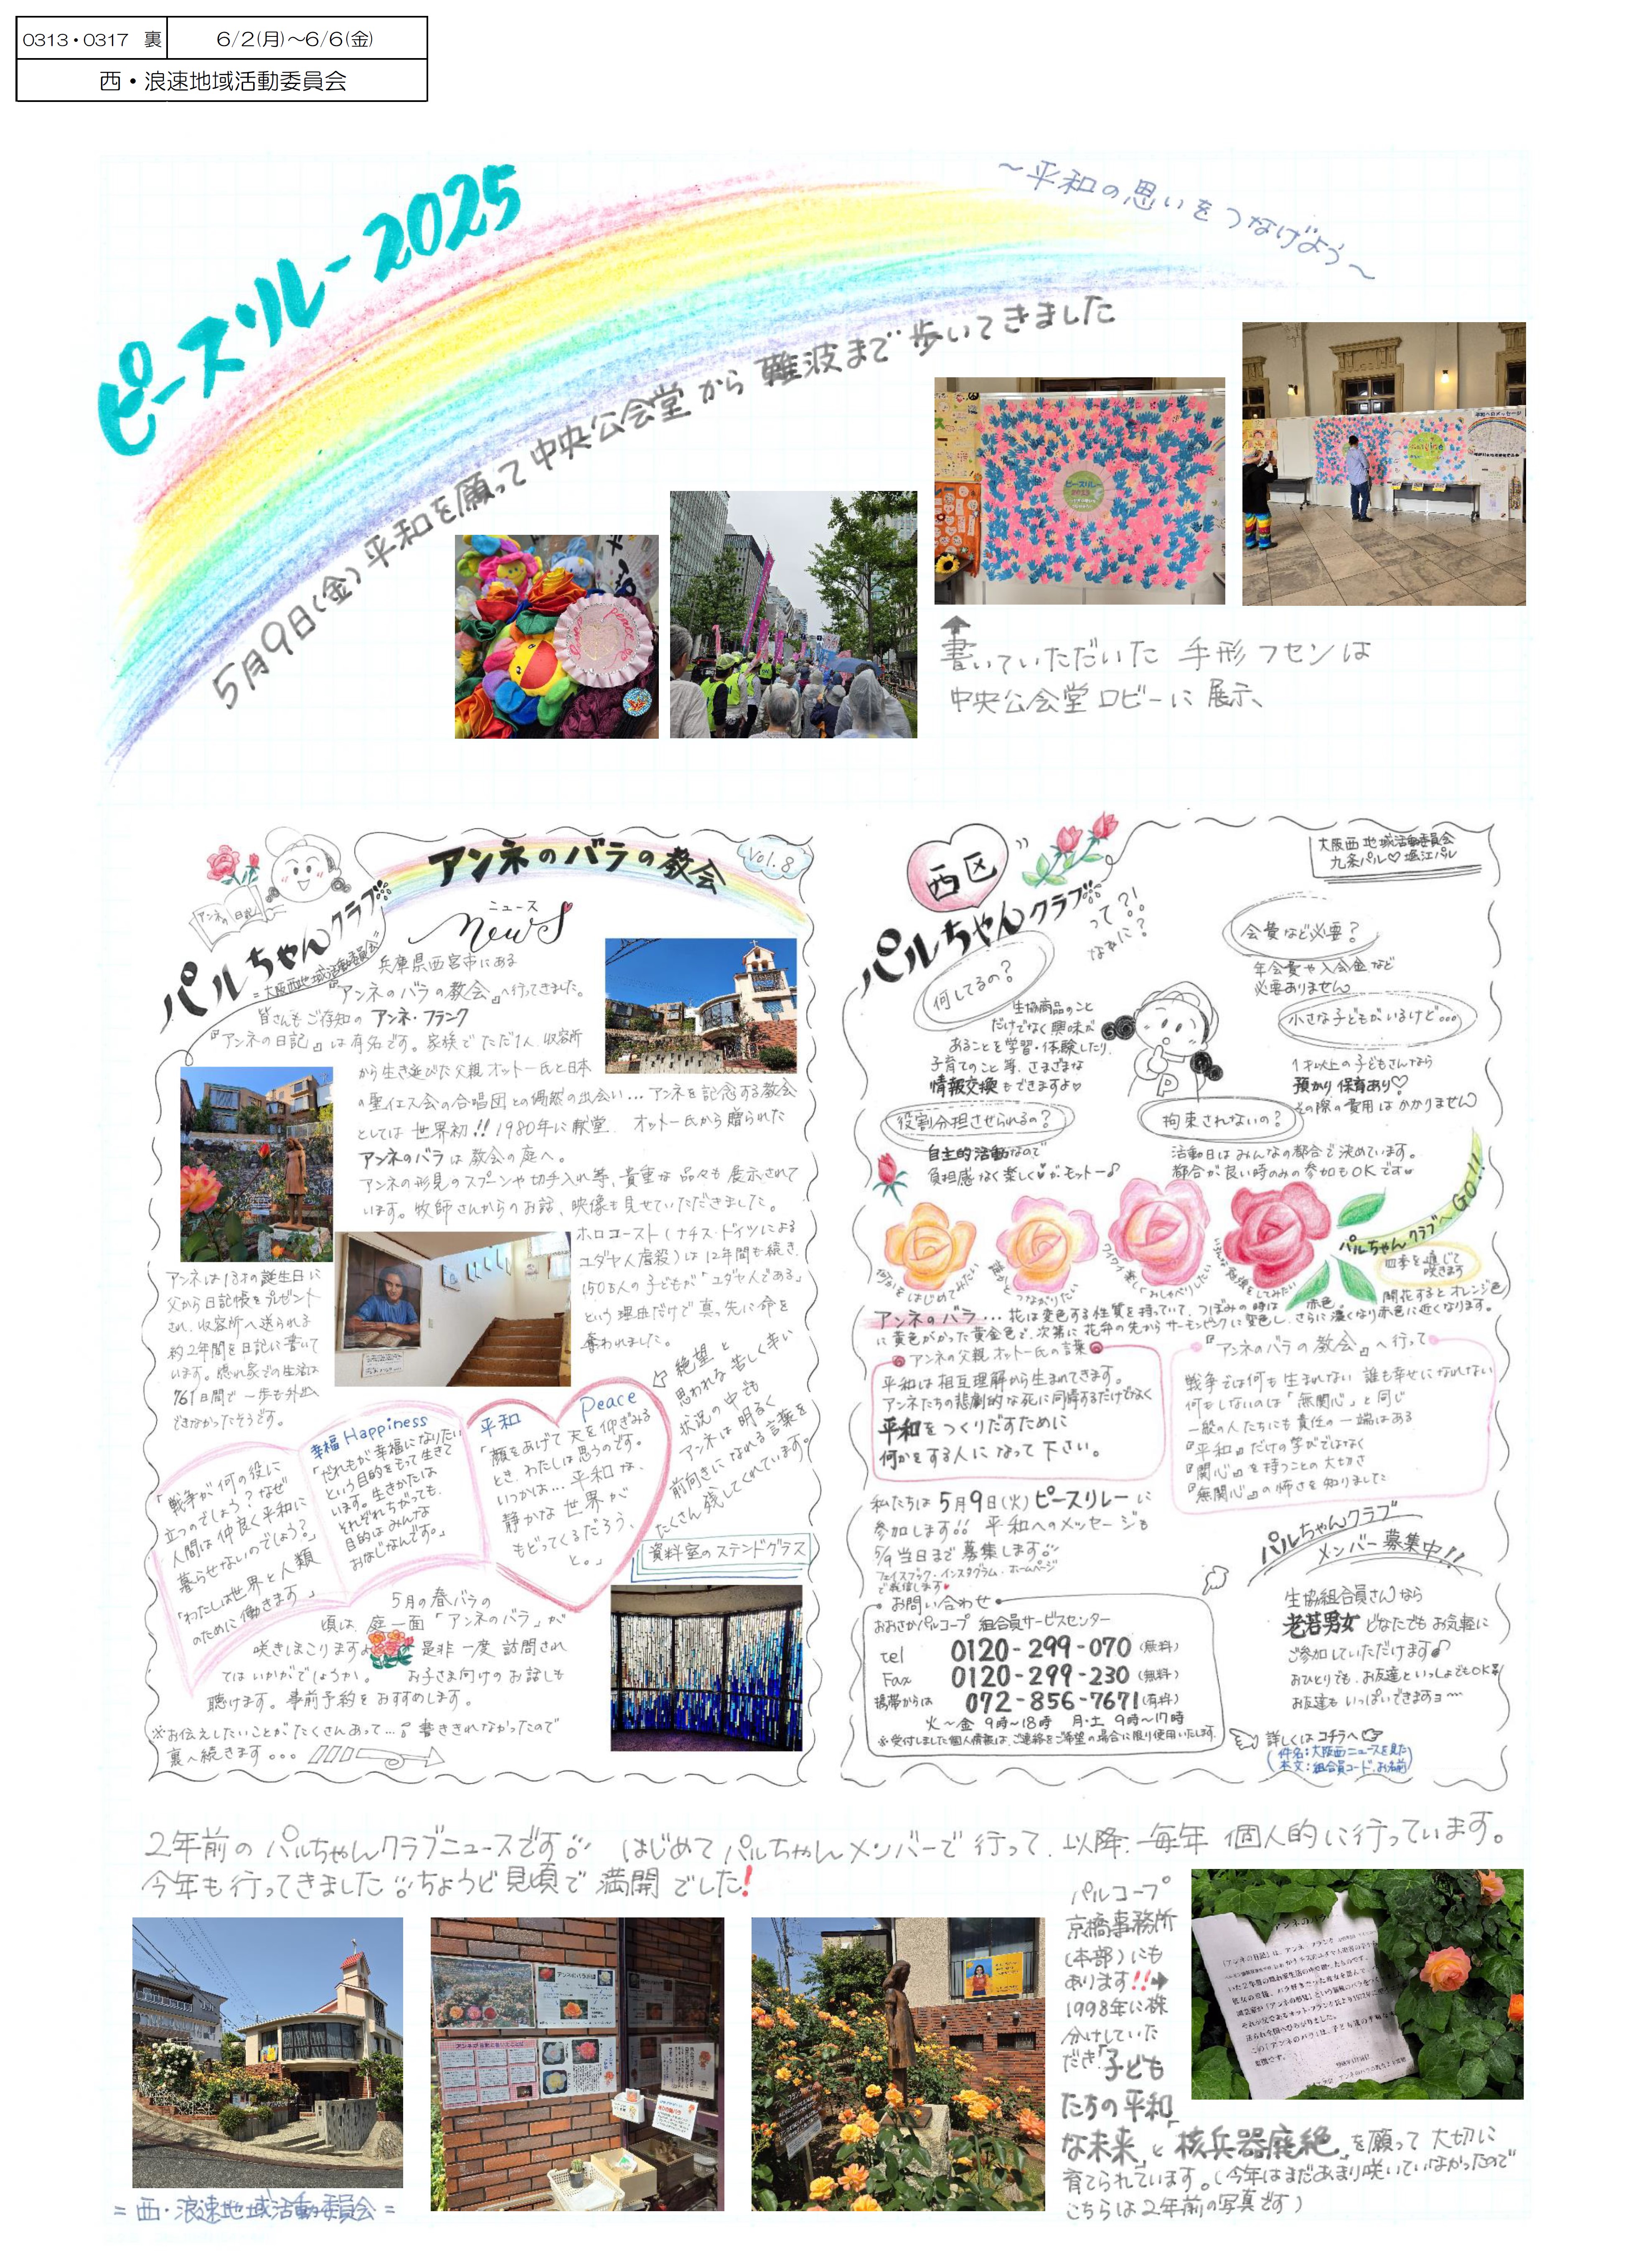 0313・0317 裏
6/2(月)～6/6(金)
西・浪速地域活動委員会
ピースリレー2025
～平和の思いをつなげよう～
5月9日(金) 平和を願って中央公会堂から難波まで歩いてきました
書いていただいた 手形フセンは
中央公会堂ロビーに展示、
アンネのバラの教会
Vol.8
ニュース
News
アンネの日記
パルちゃんクラブ
=大阪西地域活動委員会=
兵庫県西宮市にある
『アンネのバラの教会』へ行ってきました。
皆さんもご存知の アンネ・フランク
『アンネの日記』は有名です。家族でただ1人、収容所
から生き延びた父親オットー氏と日本
の聖イエス会の合唱団との偶然の出会い… アンネを記念する教会
としては 世界初!! 1980年に献堂. オットー氏から贈られた
アンネのバラは教会の庭へ。
アンネの形見のスプーンや切手入れ等、貴重な品々も展示されて
います。牧師さんからのお話、映像も見せていただきました。
ホロコースト(ナチス・ドイツによる
ユダヤ人虐殺)は12年間も続き.
150万人の子どもが「ユダヤ人である」
という理由だけで真っ先に命を
奪われました。
アンネは13才の誕生日に
父から日記帳をプレゼント
され、収容所へ送られる
約2年間を日記に書いて
います。隠れ家での生活は
761日間で一歩も外出
できなかったそうです。
絶望と
思われる苦しく辛い
状況の中でも
アンネは明るく
前向きになれる言葉を
たくさん残してくれています。
「戦争が何の役に
立つのでしょう?なぜ
人間は仲良く平和に
暮らせないのでしょう?」
「わたしは世界と人類
のために働きます」
幸福 Happiness
「だれもが幸福になりたい
という目的をもって生きて
います。生きかたは
それぞれちがっても、
目的はみんな
おなじなんです。」
平和 Peace
「顔をあげて天を仰ぎみる
とき、わたしは思うのです。
いつかは…平和な、
静かな世界が
もどってくるだろう、
と。」
資料室のステンドグラス
5月の春バラの
頃は、庭一面「アンネのバラ」が
咲きほこりますよ 是非一度訪問され
てはいかがでしょうか。 お子さま向けのお話しも
聴けます。事前予約をおすすめします。
※お伝えしたいことがたくさんあって…。書ききれなかったので
裏へ続きます。。。
西区
パルちゃんクラブ
って?!
なぁに?
大阪西地域活動委員会
九条パル♡堀江パル
何してるの?
生協商品のこと
だけでなく興味が
あることを学習・体験したり.
子育てのこと等、さまざまな
情報交換もできますよ♡
会費など必要?
年会費や入会金など
必要ありません
小さな子どもがいるけど…
1才以上の子どもさんなら
預かり保育あり♡
その際の費用はかかりません
役割分担させられるの?
自主的活動なので
負担感なく楽しく♥がモットー♪
拘束されないの?
活動日はみんなの都合で決めています。
都合が良い時のみの参加もOKです
何かをはじめてみたい
誰かとつながりたい
ワイワイ楽しくおしゃべりしたい
いろんな勉強をしてみたい
パルちゃんクラブへGO!!
四季を通じて
咲きます
アンネのバラ…花は変色する性質を持っていて、つぼみの時は赤色。開花するとオレンジ色
に黄色がかった黄金色で、次第に花弁の先からサーモンピンクに変色し、さらに濃くなり赤色に近くなります。
アンネの父親オットー氏の言葉
平和は相互理解から生まれてきます。
アンネたちの悲劇的な死に同情するだけでなく
平和をつくりだすために
何かをする人になって下さい。
『アンネのバラの教会』へ行って
戦争では何も生まれない 誰も幸せになれない
何もしないのは「無関心」と同じ
一般の人たちにも責任の一端はある
『平和』だけの学びではなく
『関心』を持つことの大切さ
『無関心』の怖さを知りました
私たちは5月9日(火)ピースリレーに
参加します!! 平和へのメッセージも
5/9当日まで募集します
フェイスブック・インスタグラム・ホームページ
で発信します♥
お問い合わせ
おおさかパルコープ 組合員サービスセンター
tel 0120-299-070(無料)
Fax 0120-299-230(無料)
携帯からは 072-856-7671(有料)
火～金 9時～18時 月・土 9時～17時
※受付しました個人情報は、ご連絡をご希望の場合に限り使用いたします.
パルちゃんクラブ
メンバー募集中!!
生協組合員さんなら
老若男女 どなたでもお気軽に
ご参加していただけます♪
おひとりでも、お友達といっしょでもOK
お友達もいっぱいできますヨ～
詳しくはコチラへ
(件名:大阪西ニュースを見た
本文:組合員コード、お名前)
2年前のパルちゃんクラブニュースです はじめてパルちゃんメンバーで行って、以降、毎年 個人的に行っています。
今年も行ってきました ちょうど見頃で満開でした!
パルコープ
京橋事務所
(本部)にも
あります!!➡
1998年に株
分けしていた
だき「子ども
たちの平和
な未来」と「核兵器廃絶」を願って大切に
育てられています。(今年はまだあまり咲いていなかったので
こちらは2年前の写真です)
=西・浪速地域活動委員会=